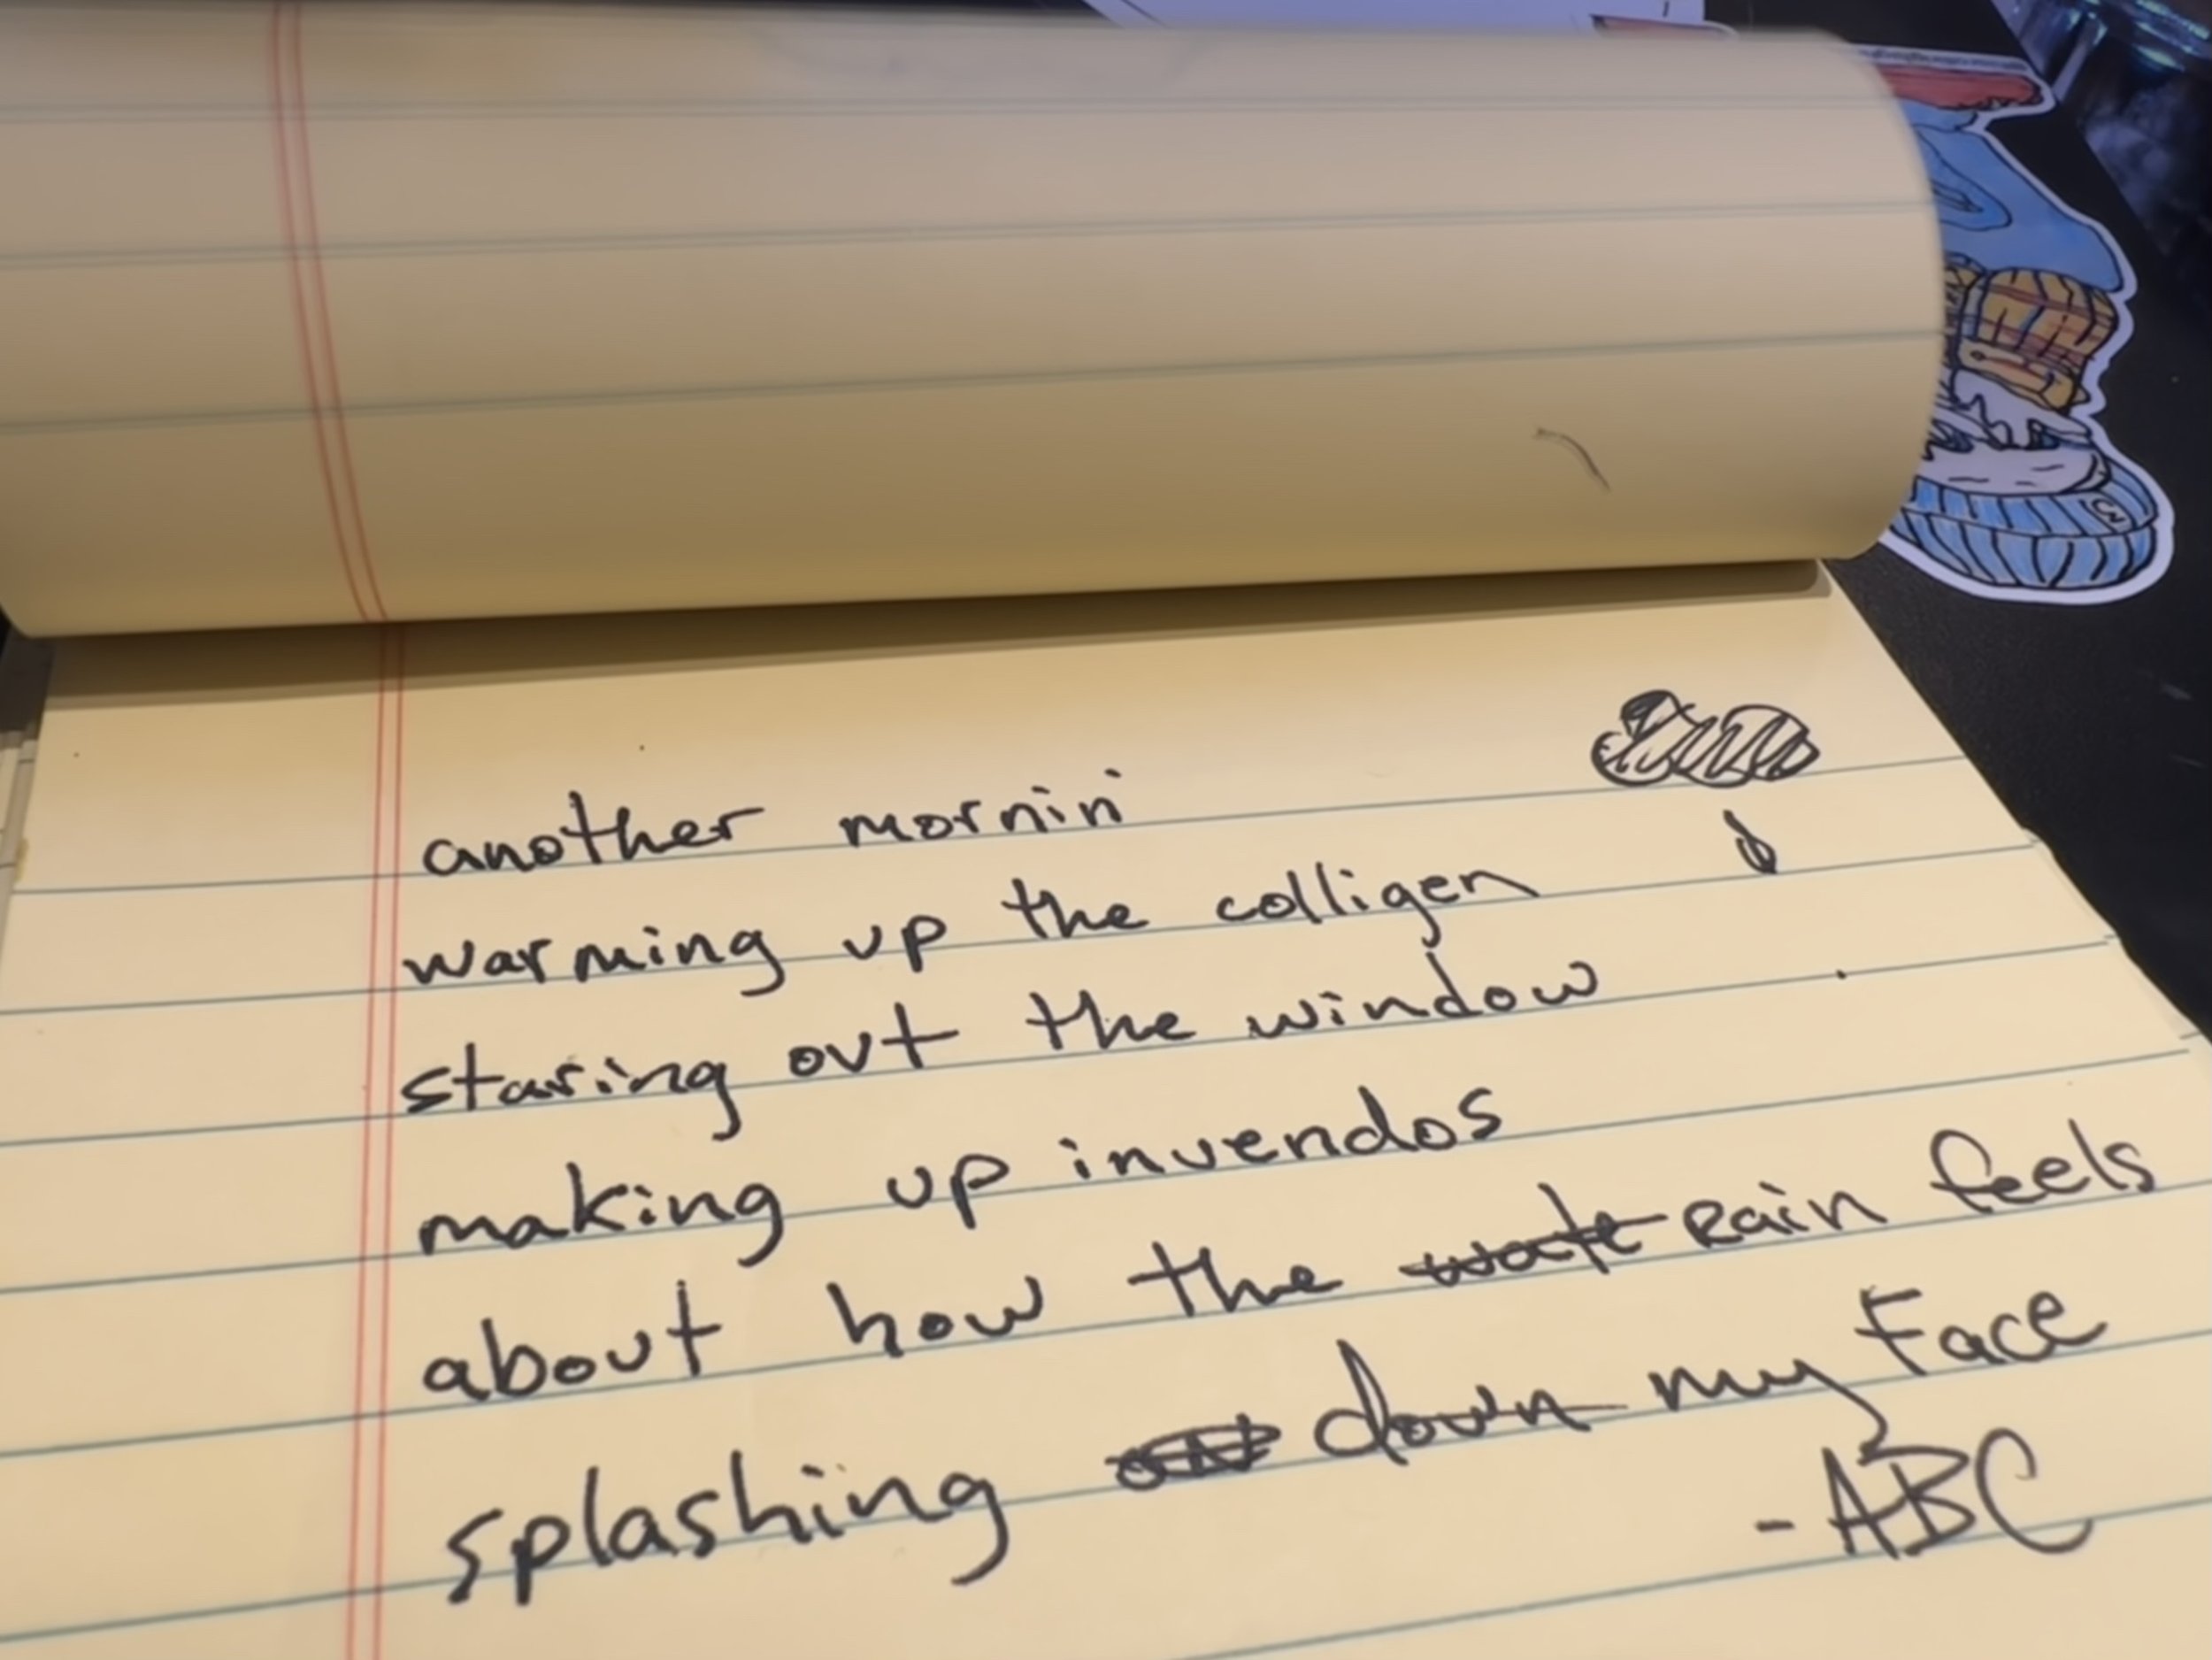 another mornin
warming up the colligen
staring out the window
making up invendos
about how the wate Rain feels
splashing down my Face
-ABC